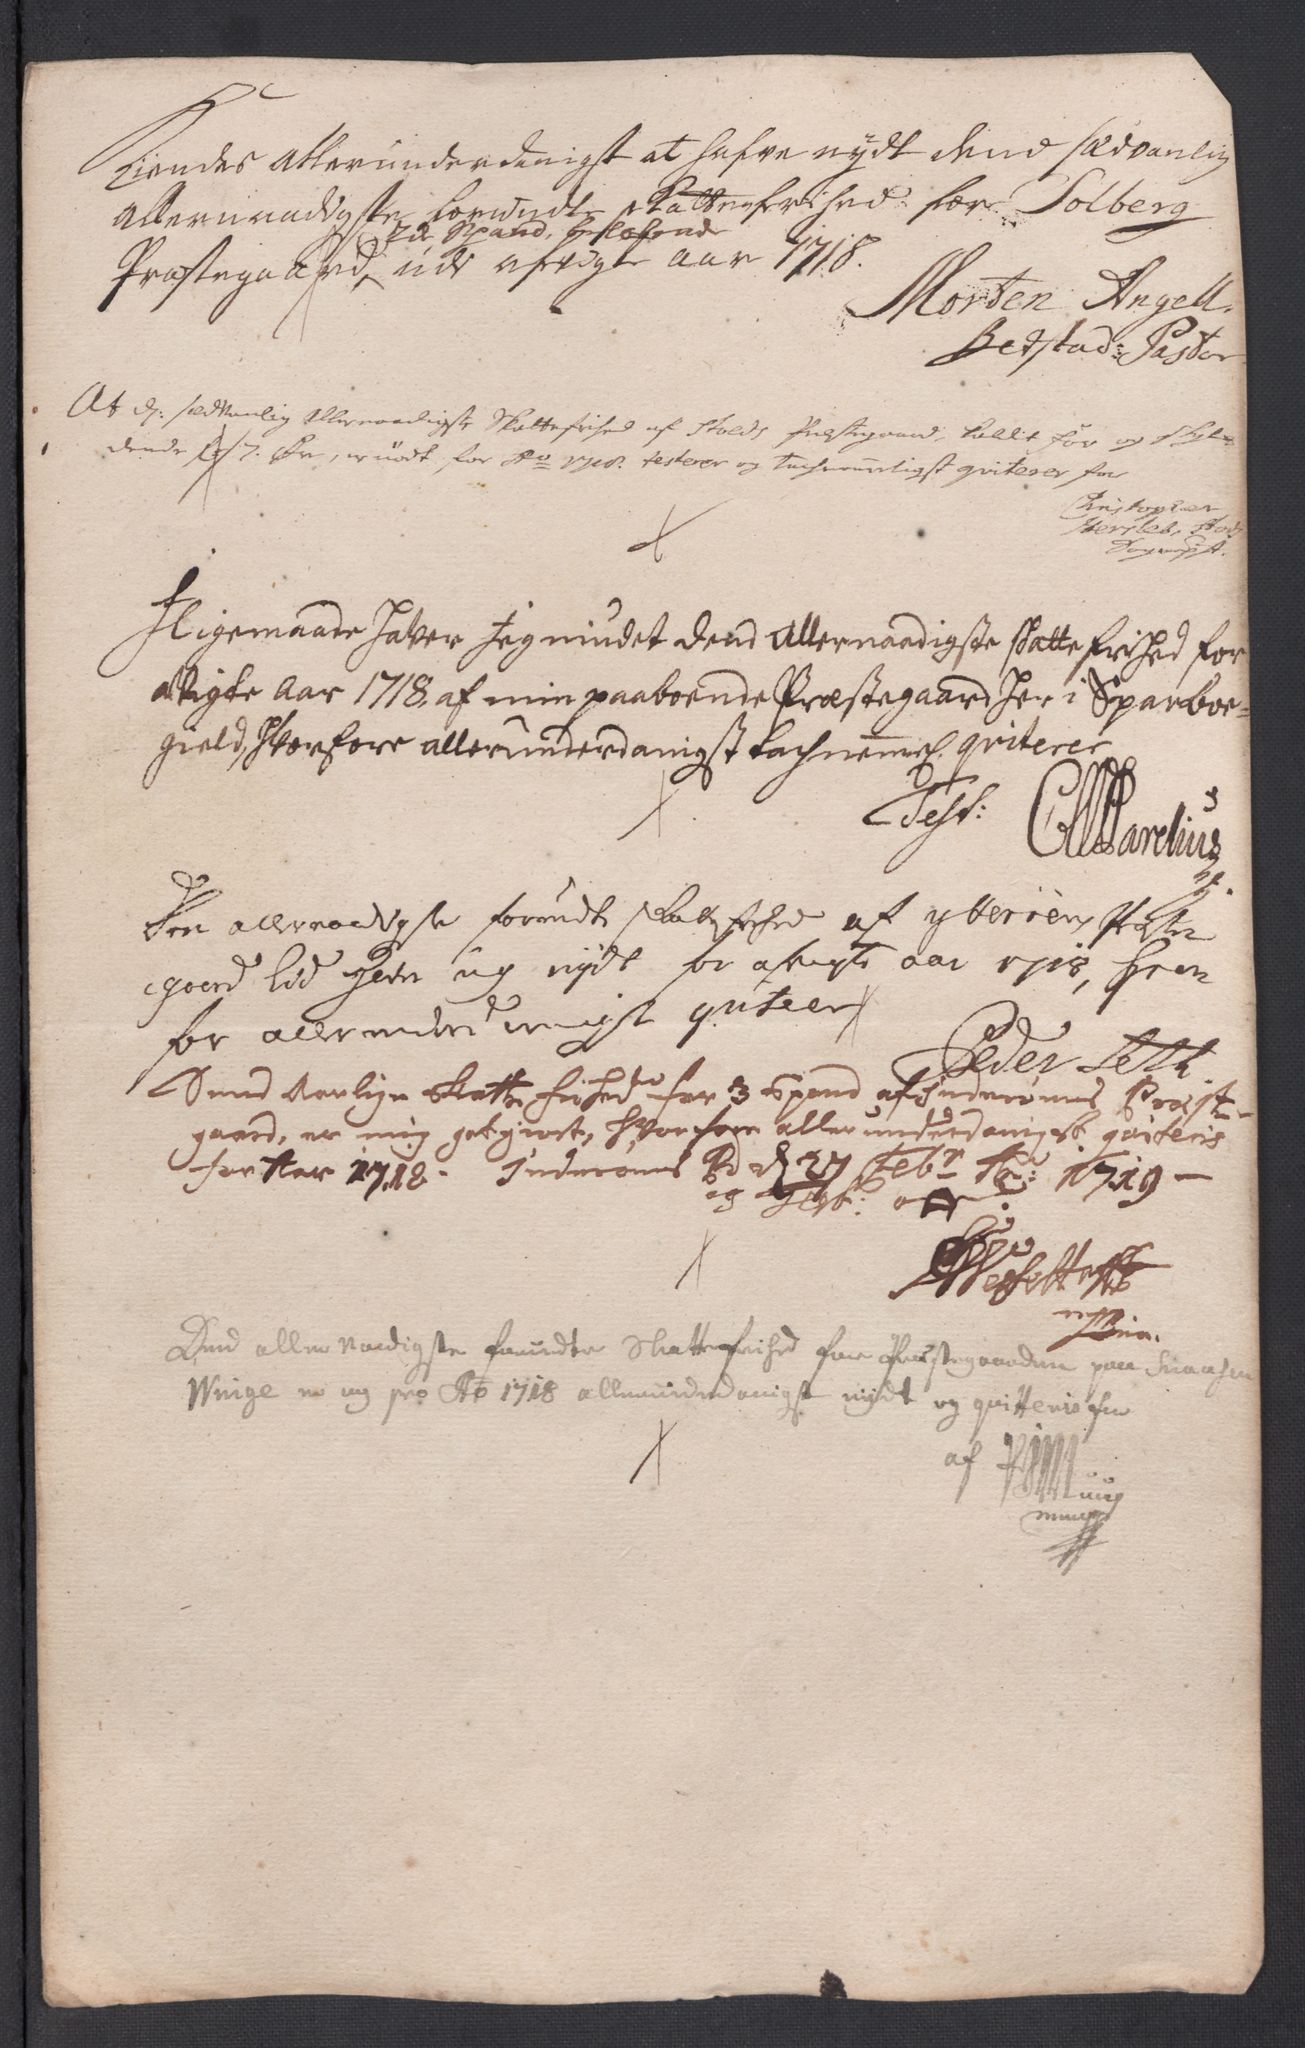 Kiendes allerunderdanigst at hafve nydt dend sædvanlig
allernaadigste forundte skattefrihed for Solberg
2de Spand,
Præstegaard, udi afvigte aar 1718.
Morten Angell.
Bedstad: Pastor
At d: sædvanlig allernaadigste Skattefrihed af Præstegaard, kaldet før og skyl-
dende 7. Øre, er nödt for Ao 1718. testerer og tachnemmeligst qviterer for
Christopher
Hersleb,
I ligemaade haver jeg niudet dend allernaadigste skatte frihed for
afvigte aar 1718, af min paaboende Præstegaard her i Sparboe-
gield, hvorfore allerunderdanigst tachnemmel. qviterer
Test: Parelius
Den allernaadigste forundte skattefrihed af ytterøens Præste
goerd jeg nydt for afvigte aar 1718, hvor
for allerunderdanigst qviteer
Peder Seth
Dend aarlige skatte frihed for 3 Spand af Inderøens Præste-
gaard, er mig gotgiort, hvorfore allerunderdanigst qviteris
for aar 1718. Inderøens Pd d 27 Febr Ao: 1719 -
og Test:
Dend aller naadigste forundte Skattefrihed for Præstegaarden paa Snaasen
Winge er mig pro Ao 1718 allerunderdanigst nydt og qvitteris for
af